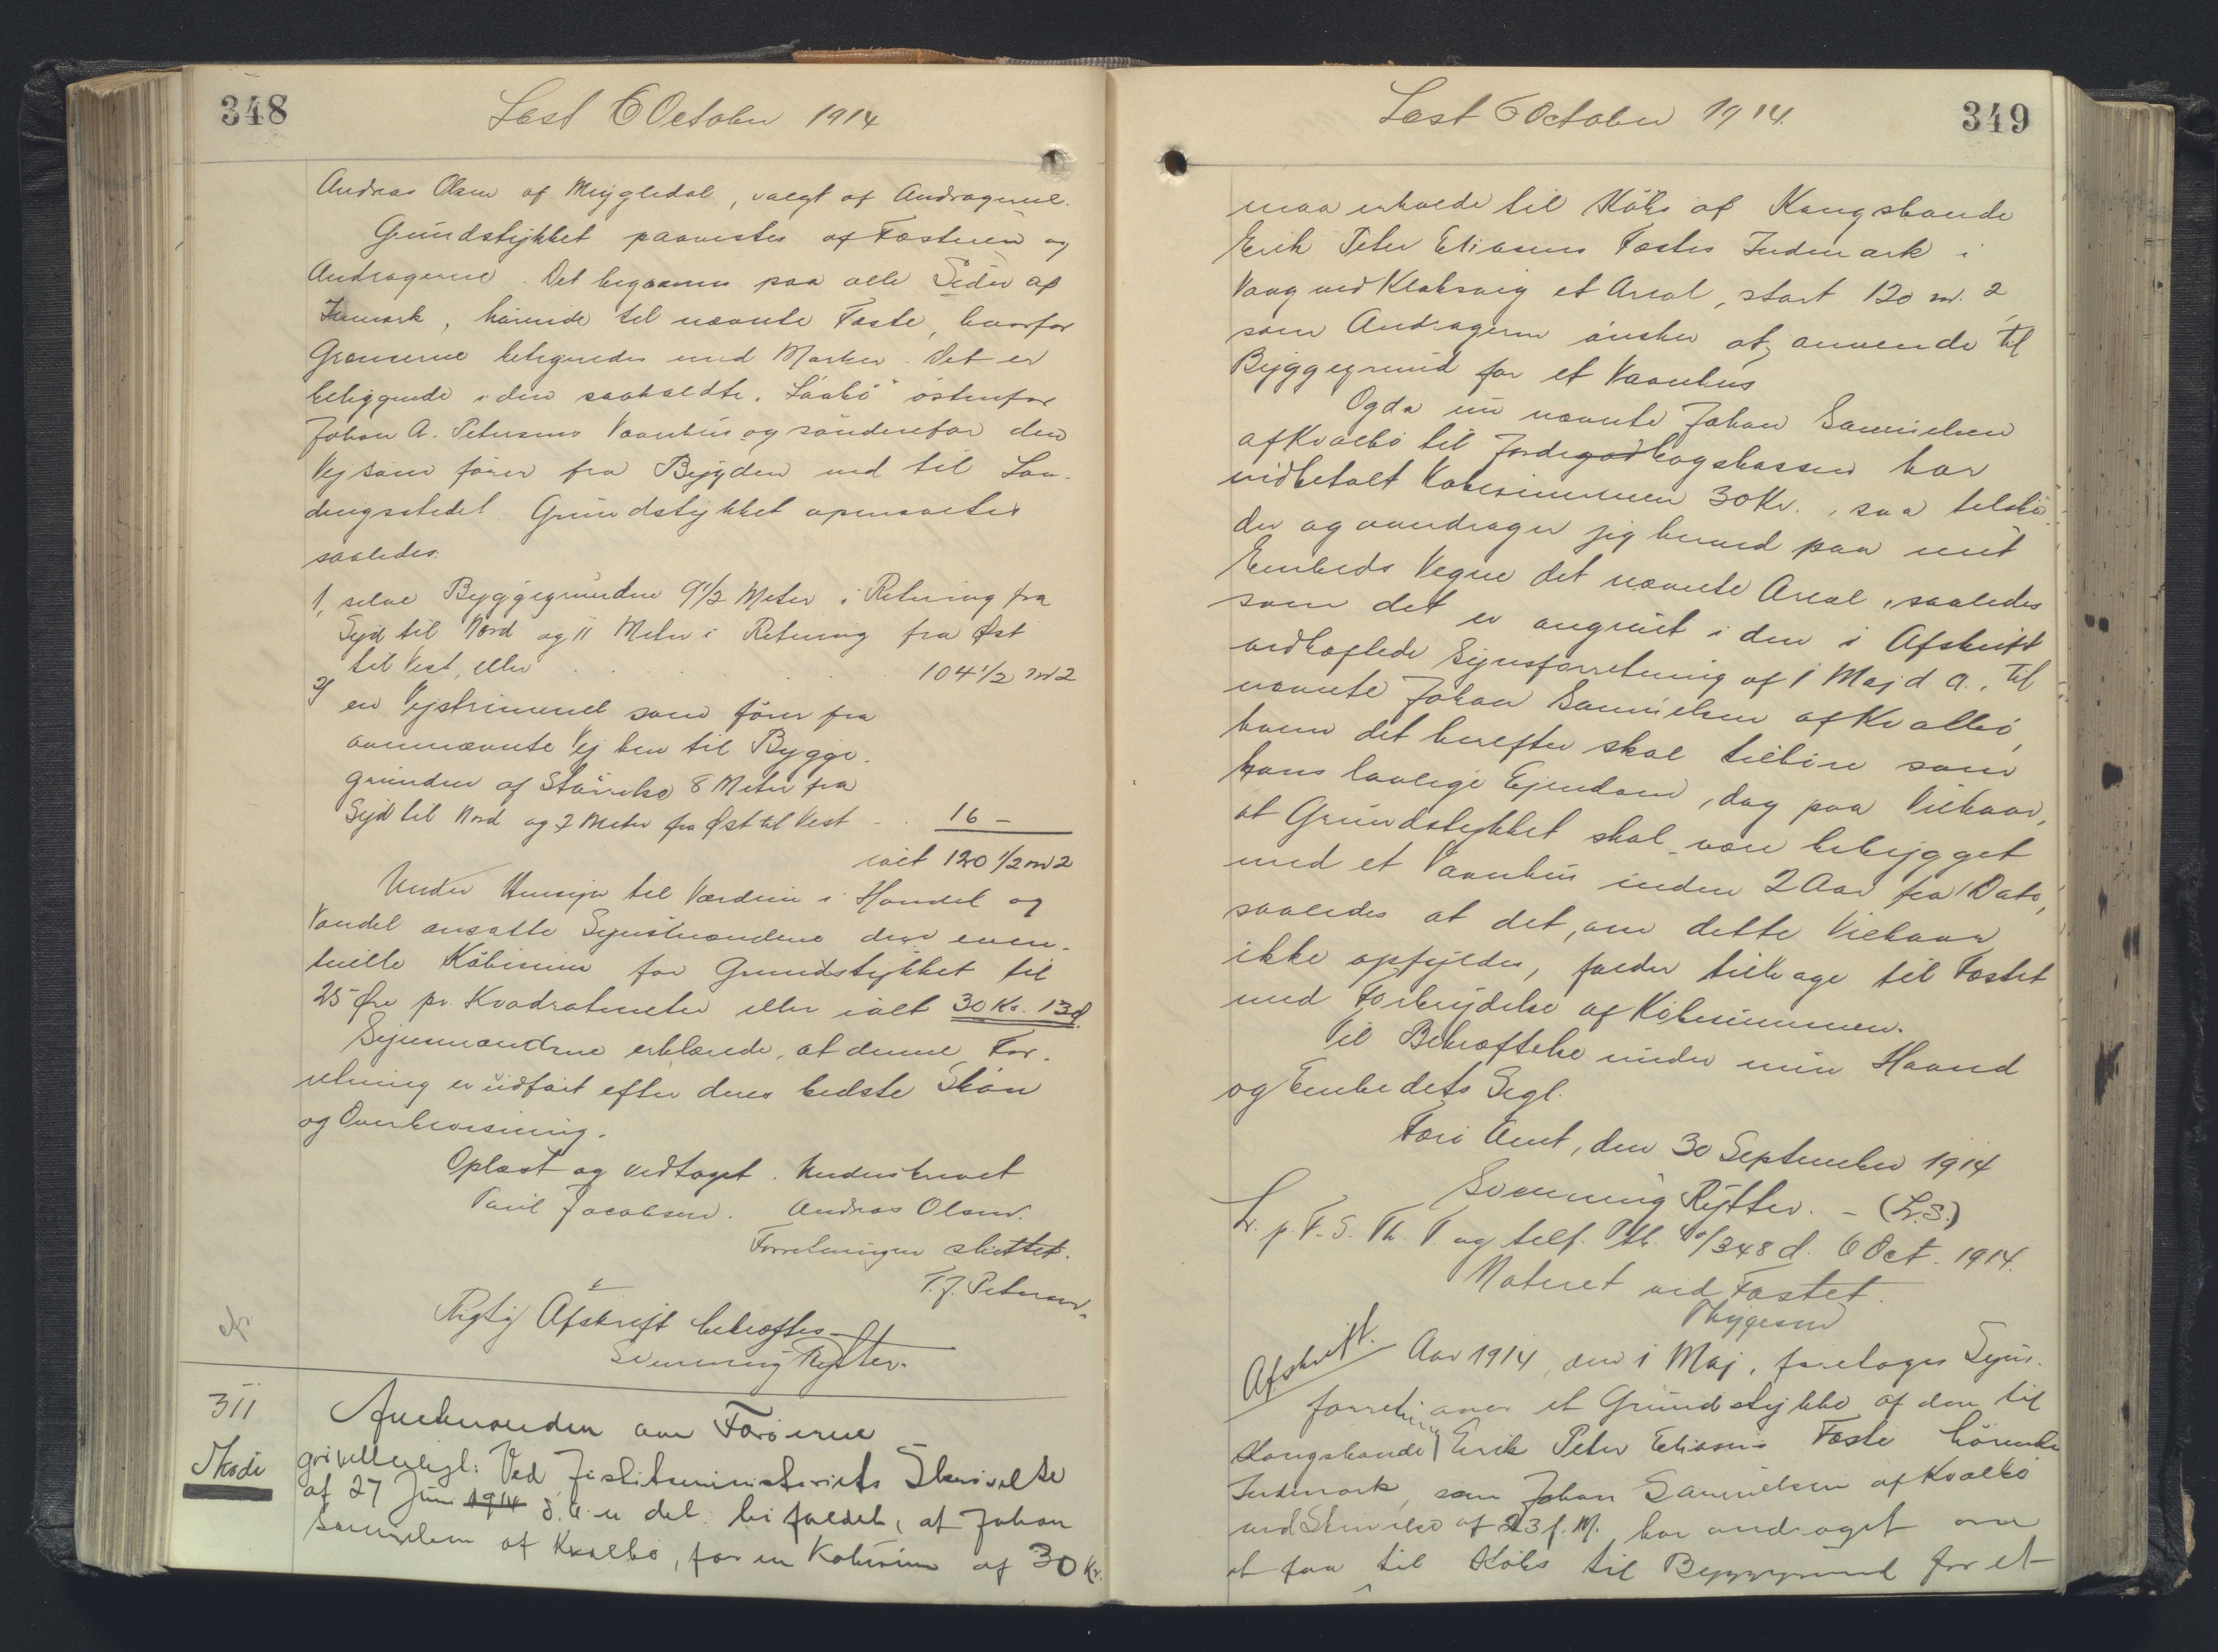 348
Læst 6 October 1914
Andreas Olsen af Mygledal, valgt af Andragerne.
Grundstykket paavistes af Fæsteren og
Andragerne. Det begrænses paa alle Sider af
Inmark, hörende til nævnte Fæste, hvorfor
Grænserne betegnedes med Mærker. Det er
beliggende i den saakaldte "Laabö" östenfor
Johan A. Petersens Vaanhus og söndenfor den
Vej som förer fra Bygden ned til Lan-
dingsstedet. Grundstykket opmaaltes
saaledes:
1, selve Byggegrunden 9 1/2 Meter i Retning fra
Syd til Nord og 11 Meter i Retning fra Øst
til Vest, eller . . . 104 1/2 m2
2/ en Vejstrimmel som förer fra
ovennævnte Vej hen til Bygge-
grunden af Störrelse 8 Meter fra
Syd til Nord og 2 Meter fra Øst til Vest . . 16 —
ialt 120 1/2 m2
Under Hensyn til Værdien i Handel og
Vandel ansatte Synsmændene den even-
tuelle Köbesum for Grundstykket til
25 Øre pr. Kvadratmeter eller ialt 30 Kr. 13 Ø.
Synsmændene erklærede, at denne For-
retning er udfört efter deres bedste Skön
og Overbevisning.
Oplæst og vedtaget. Underskrevet
Paul Jacobsen. Andreas Olsen.
Forretningen sluttet.
T. J. Petersen.
Rigtig Afskrift bekræftes
Svenning Rytter.
311
Skøde
Amtmanden over Færöerne
gör vitterligt: Ved Justitsministeriets Skrivelse
af 27 Juni 1914 d. A. er det bifaldet, at Johan
Samuelsen af Kvalbö, for en Köbesum af 30 Kr.
349
Læst 6 October 1914.
maa erholde til Köbs af Kongsbonde
Erik Peter Eliasens Fæstes Indmark i
Vaag ved Klaksvig et Areal, stort 120 m.2
som Andrageren önsker at anvende til
Byggegrund for et Vaanhus
Og da nu nævnte Johan Samuelsen
af Kvalbö til Jordegodbogskassen har
indbetalt Købesummen 30 Kr., saa tilskö-
der og overdrager jeg herved paa mit
Embeds Vegne det nævnte Areal, saaledes
som det er angivet i den i Afskrift
vedhæftede Synsforretning af 1 Maj d. A., til
nævnte Johan Samuelsen af Kvalbö,
hvem det herefter skal tilhöre som
hans lovlige Ejendom, dog paa Vilkaar,
at Grundstykket skal være bebygget
med et Vaanhus inden 2 Aar fra Dato,
saaledes at det, om dette Vilkaar
ikke opfyldes, falder tilbage til Fæstet
med Forbrydelse af Köbesummen.
Til Bekræftelse under min Haand
og Embedets Segl.
Færö Amt, den 30 September 1914
Svenning Rytter. – (L.S.)
L. p. F. S. Th T. og tilf. Ptb. /348 d. 6 Oct. 1914.
Noteret ved Fæstet.
Thygesen
Afskrift. Aar 1914, den 1 Maj, foretoges Syns-
forretning over et Grundstykke af den til
Kongsbonde Erik Peter Eliasens Fæste hörende
Indmark, som Johan Samuelsen af Kvalbö
ved Skrivelse af 23 f. M. har andraget om
at faa til Köbs til Byggegrund for et